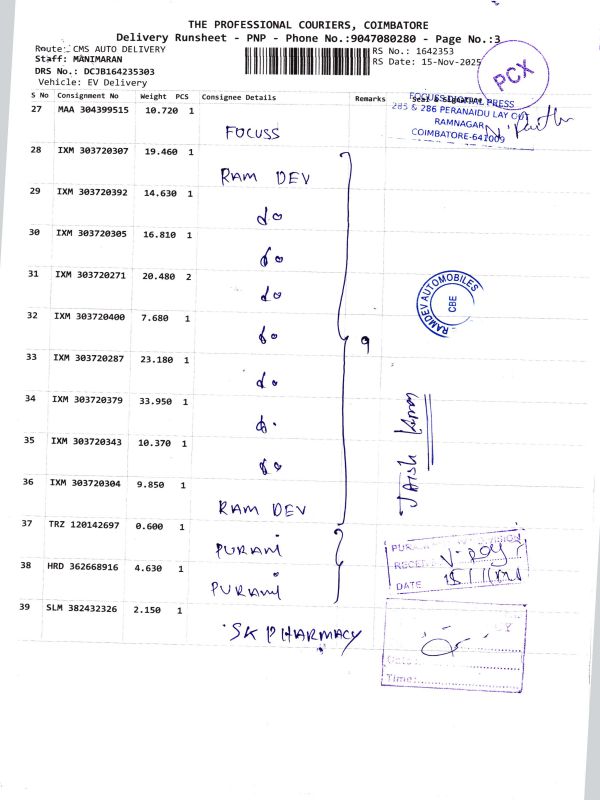 THE PROFESSIONAL COURIERS, COIMBATORE
Delivery Runsheet - PNP - Phone No.:9047080280 - Page No.:3
Route: CMS AUTO DELIVERY
RS No.: 1642353
Staff: MANIMARAN
RS Date: 15-Nov-2025
DRS No.: DCJB164235303
Vehicle: EV Delivery
PCX
S No Consignment No Weight PCS Consignee Details Remarks
27 MAA 304399515 10.720 1
FOCUSS
FOCUSS DIGITAL PRESS
285 & 286 PERANAIDU LAY OUT
RAMNAGAR
COIMBATORE-641009
28 IXM 303720307 19.460 1
RAM DEV
29 IXM 303720392 14.630 1
do
30 IXM 303720305 16.810 1
do
31 IXM 303720271 20.480 2
do
RAMDEV AUTOMOBILES
CBE
32 IXM 303720400 7.680 1
do
9
33 IXM 303720287 23.180 1
do
34 IXM 303720379 33.950 1
35 IXM 303720343 10.370 1
do
36 IXM 303720304 9.850 1
RAM DEV
37 TRZ 120142697 0.600 1
PURANI
38 HRD 362668916 4.630 1
PURANI
DATE
39 SLM 382432326 2.150 1
SK PHARMACY
Date:
Time: